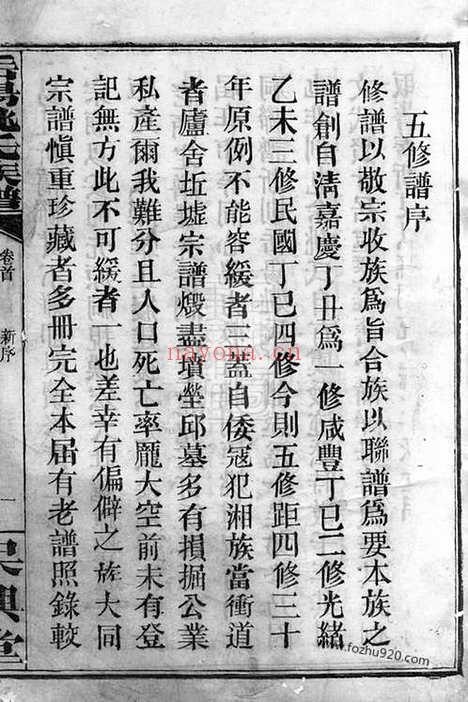 五修譜序
修譜以敬宗收族爲旨合族以聯譜爲要本族之
譜創自清嘉慶丁丑爲一修咸豐丁巳二修光緒
乙未三修民國丁巳四修今則五修距四修三十
年原例不能容緩者三蓋自倭冦犯湘族當衝道
者廬舍坵墟宗譜燬盡墳塋邱墓多有損掘公業
私產爾我難分且人口死亡率龐大空前未有登
記無方此不可緩者一也差幸有偏僻之族大同
宗譜愼重珍藏者多冊完全本届有老譜照錄較
姚氏族譜
卷首
新序
一
興堂
nayona.cn
www.fozhu920.com